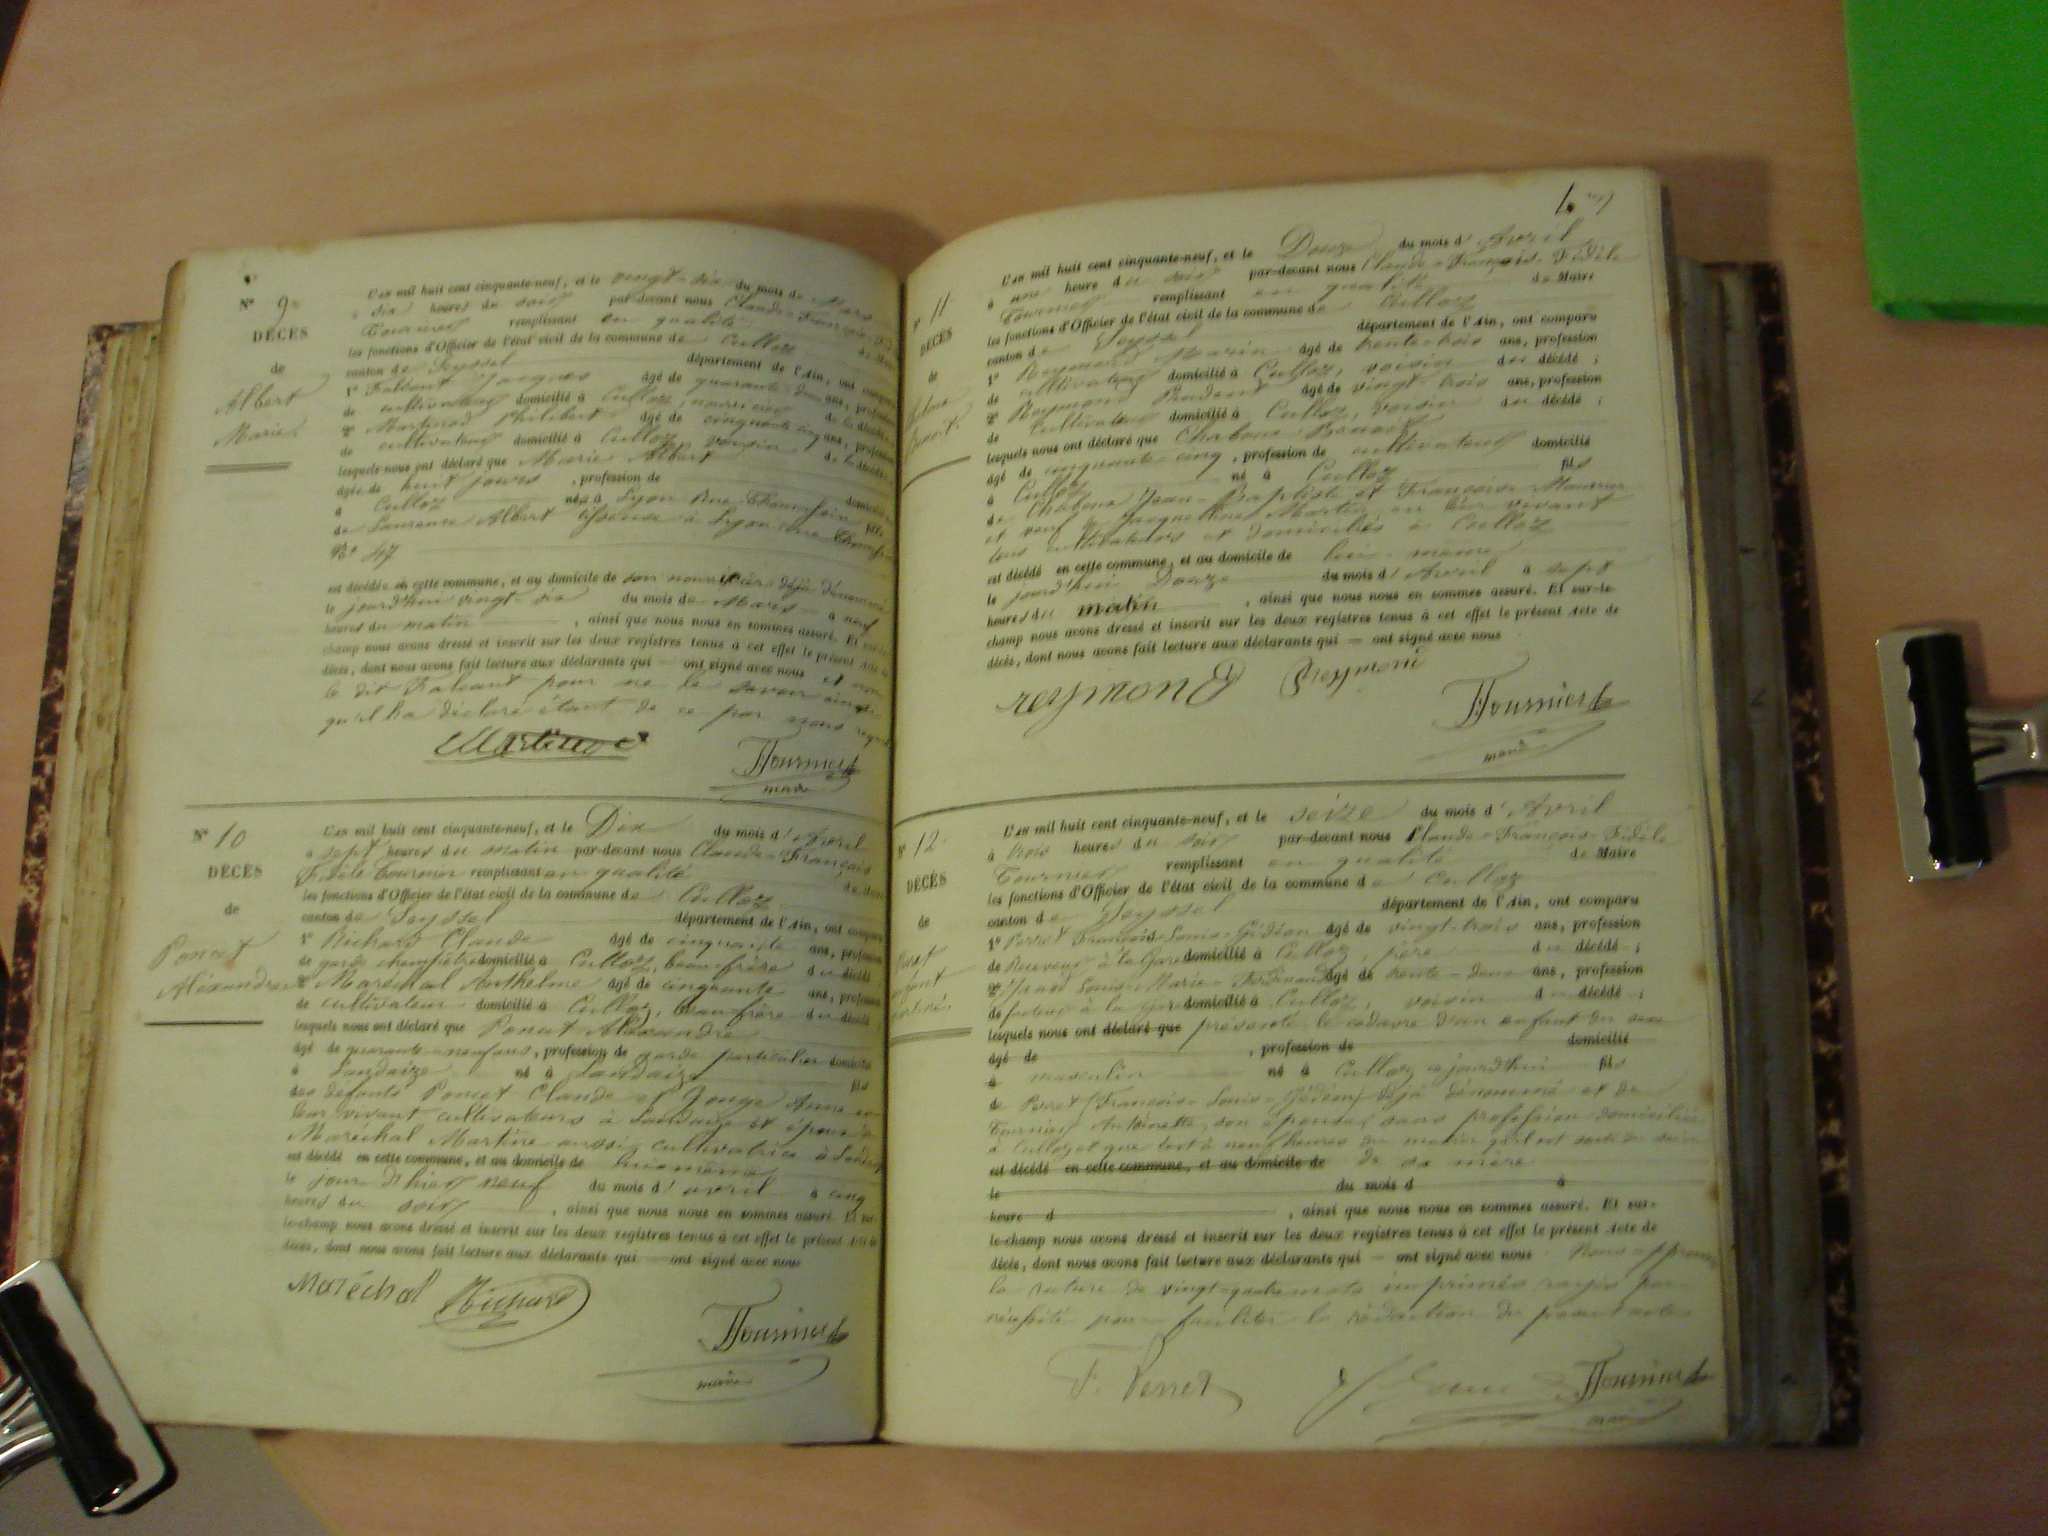 N° 9
DÉCÈS
de
Albert
Marie
L'an mil huit cent cinquante-neuf, et le vingt-six du mois de Mars
à dix heures du soir par-devant nous Claude-François
Tournier remplissant en qualité
les fonctions d'Officier de l'état civil de la commune de Culloz
canton de Seyssel département de l'Ain, ont comparu
1° Jacques âgé de quarante-deux ans, profession
de cultivateur domicilié à Culloz, nourricier de la décédée
2° Martinod Philibert âgé de cinquante cinq ans, profession
de cultivateur domicilié à Culloz voisin de la décédée
lesquels nous ont déclaré que Marie Albert
âgée de huit jours, profession de
à Culloz née à Lyon Rue
de Laurence Albert à Lyon rue
N° 47
est décédée en cette commune, et au domicile de son nourricier déjà dénommé
le jourd'hui vingt-six du mois de Mars à neuf
heures du matin, ainsi que nous nous en sommes assuré. Et sur-le-
champ nous avons dressé et inscrit sur les deux registres tenus à cet effet le présent acte de
décès, dont nous avons fait lecture aux déclarants qui = ont signé avec nous et non
le dit pour ne le savoir ainsi
qu'il l'a déclaré étant de ce par nous
Martinod
Tournier
maire
N° 10
DÉCÈS
de
Poncet
Alexandre
L'an mil huit cent cinquante-neuf, et le Dix du mois d'Avril
à sept heures du matin par-devant nous Claude-François
Fidèle Tournier remplissant en qualité de Maire
les fonctions d'Officier de l'état civil de la commune de Culloz
canton de Seyssel département de l'Ain, ont comparu
1° Richard Claude âgé de cinquante ans, profession
de garde champêtre domicilié à Culloz, beau frère du décédé
2° Maréchal Anthelme âgé de cinquante ans, profession
de cultivateur domicilié à Culloz, beau frère du décédé
lesquels nous ont déclaré que Poncet Alexandre
âgé de quarante-neuf ans, profession de garde particulier domicilié
à Landaize né à Landaize fils
des défunts Poncet Claude et Anne en
leur vivant cultivateurs à Landaize et époux de
Maréchal Martine aussi cultivatrice à
est décédé en cette commune, et au domicile de lui même
le jour d'hier neuf du mois d'avril à cinq
heures du soir, ainsi que nous nous en sommes assuré. Et sur-
le-champ nous avons dressé et inscrit sur les deux registres tenus à cet effet le présent acte de
décès, dont nous avons fait lecture aux déclarants qui — ont signé avec nous
Maréchal Richard
Tournier
maire
N° 11
DÉCÈS
de
Benoit
L'an mil huit cent cinquante-neuf, et le Douze du mois d'Avril
à une heure du soir par-devant nous Claude-François-Fidèle
Tournier remplissant en qualité de Maire
les fonctions d'Officier de l'état civil de la commune de Culloz
canton de Seyssel département de l'Ain, ont comparu
1° Reymond Marin âgé de trente-trois ans, profession
de cultivateur domicilié à Culloz, voisin du décédé ;
2° Reymond Prudent âgé de vingt-trois ans, profession
de Cultivateur domicilié à Culloz, voisin du décédé ;
lesquels nous ont déclaré que Chaboux Benoit
âgé de cinquante-cinq, profession de cultivateur domicilié
à Culloz né à Culloz fils
de Chaboux Jean-Baptiste et Françoise
et veuf de Jacqueline Martin en leur vivant
tous cultivateurs et domiciliés à Culloz
est décédé en cette commune, et au domicile de lui-même
le jourd'hui Douze du mois d'Avril à sept
heures du matin, ainsi que nous nous en sommes assuré. Et sur-le-
champ nous avons dressé et inscrit sur les deux registres tenus à cet effet le présent acte de
décès, dont nous avons fait lecture aux déclarants qui = ont signé avec nous
reymond Reymond
Tournier
maire
N° 12
DÉCÈS
de
Perret
enfant
L'an mil huit cent cinquante-neuf, et le seize du mois d'Avril
à trois heures du soir par-devant nous Claude-François-Fidèle
Tournier remplissant en qualité de Maire
les fonctions d'Officier de l'état civil de la commune de Culloz
canton de Seyssel département de l'Ain, ont comparu
1° Perret François-Louis-Gédéon âgé de vingt-trois ans, profession
de Receveur à la Gare domicilié à Culloz, père du décédé ;
2° Louis-Marie-Ferdinand âgé de trente-deux ans, profession
de facteur à la gare domicilié à Culloz, voisin du décédé ;
lesquels nous ont déclaré que présenté le cadavre d'un enfant du sexe
âgé de , profession de domicilié
à masculin né à Culloz aujourd'hui fils
de Perret (François-Louis-Gédéon) déjà dénommé et de
Tournier Antoinette, son épouse, sans profession domiciliés
à Culloz et que c'est à neuf heures du matin qu'il est sorti du sein
est décédé en cette commune, et au domicile de de sa mère
le du mois d à
heure d , ainsi que nous nous en sommes assuré. Et sur-
le-champ nous avons dressé et inscrit sur les deux registres tenus à cet effet le présent acte de
décès, dont nous avons fait lecture aux déclarants qui = ont signé avec nous. Nous approuvons
la rature de vingt-quatre mots imprimés rayés par
nécessité pour faciliter la rédaction du présent acte
F. Perret
Tournier
maire